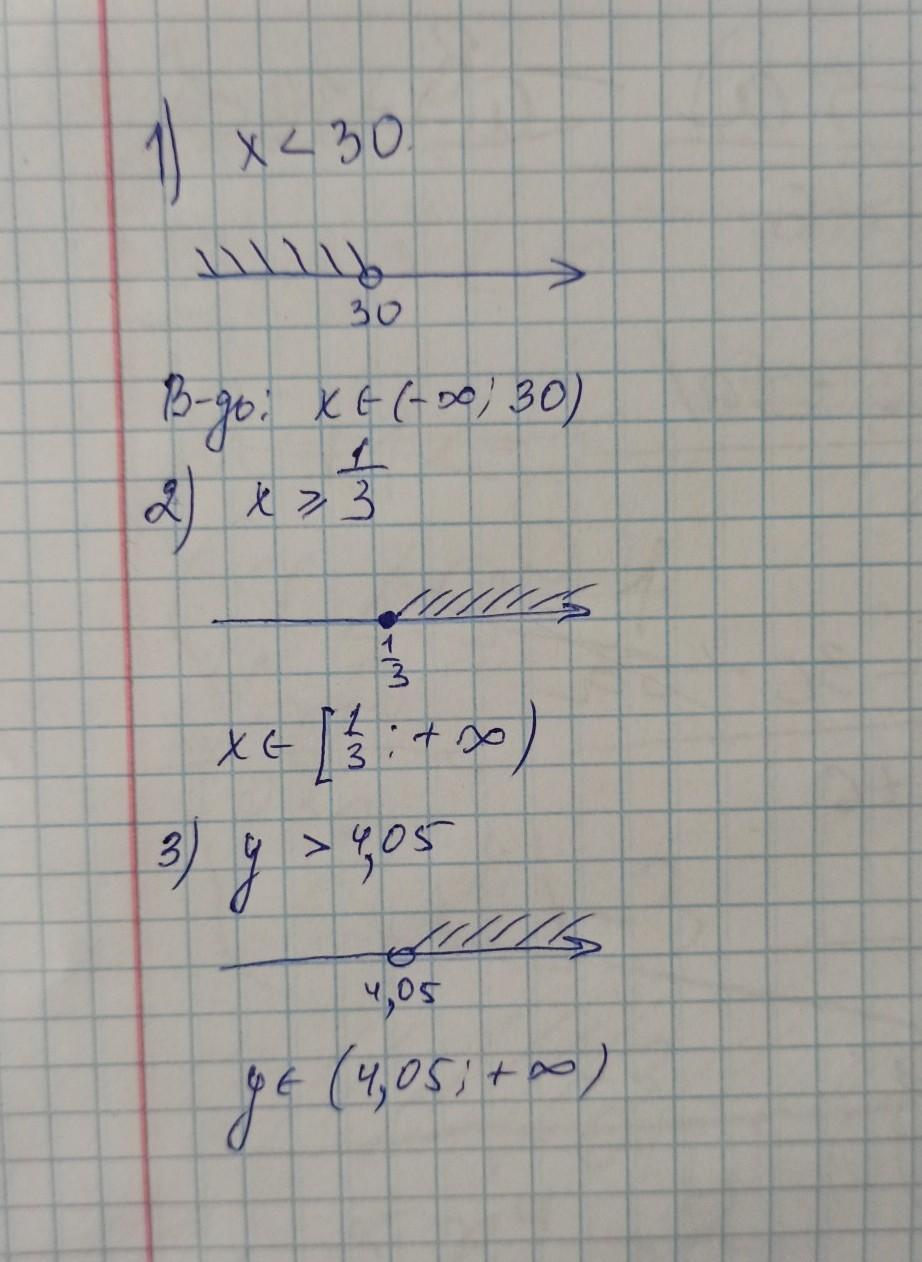 1) x < 30
30
В-дь: x ∈ (-∞; 30)
2) x ⩾ 1/3
1/3
x ∈ [1/3; +∞)
3) y > 4,05
4,05
y ∈ (4,05; +∞)